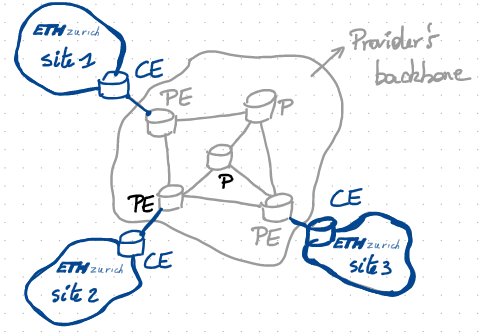 ETH zürich
site 1
CE
Provider's
backbone
PE
P
P
PE
CE
PE
CE
ETH zürich
site 2
ETH zürich
site 3